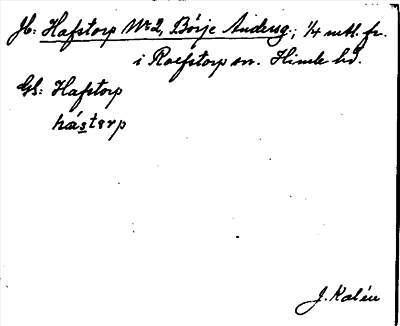 Jb: Hafstorp Nr 2, Börje Andersg.; 1/4 mtl. fr.
i Rolfstorp sn. Himle hd.
Gs: Hafstorp
hástɛrp
J. Kalén